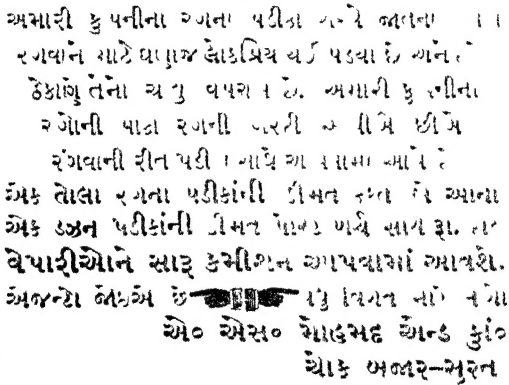 અમારી કુંપનીના રંગના પડીકા જાતના
રંગવાને માટે ઘણાજ લોકપ્રિય થઈ પડયા છે અને
ઠેકાણે તેનો વપરાશ છે. અમારી કુંપનીના
રંગોની રંગની છીએ
રંગવાની રીત પડીકા સાથે આપવામાં આવે છે
એક તોલા રંગના પડીકાંની કીમત આના
એક ડઝન પડીકાંની કીમત પોસ્ટ ખર્ચ સાથ રૂા.
વેપારીઓને સારૂં કમીશન આપવામાં આવશે.
એજન્ટો જોઈએ છે વધુ વિગત માટે લખો
એ૦ એસ૦ મોહમદ એન્ડ કુાં૦
ચોક બજાર-સુરત